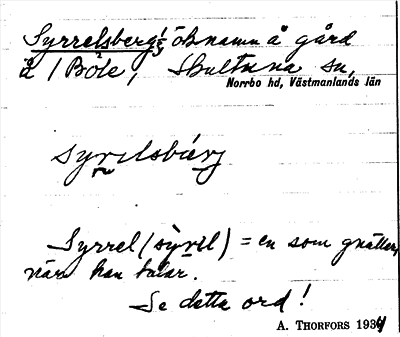 Syrrelsberg, öknamn å gård
å /Böle, Skultuna sn,
Norrbo hd, Västmanlands län
syrilsbärj
Syrrel (sỳril) = en som gnäller,
när han talar.
Se detta ord!
A. THORFORS 1934